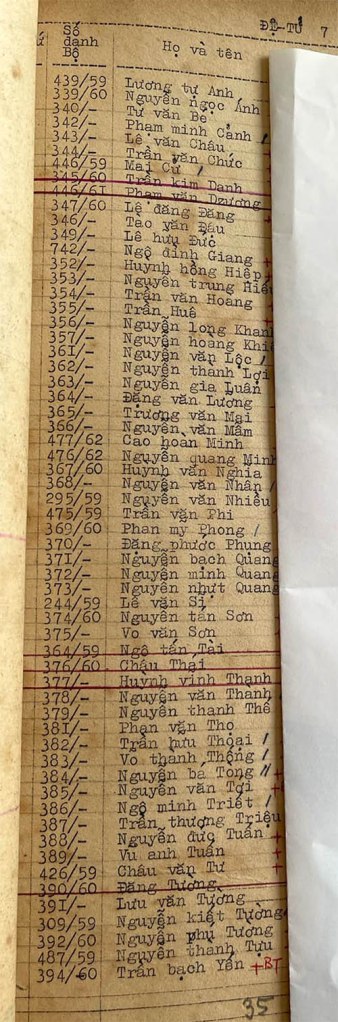 ĐỆ-TỨ 7
Số
danh
Bộ
Họ và tên
439/59 Lương tự Anh
339/60 Nguyễn ngọc Ánh
340/- Từ văn Be
342/- Phạm minh Cảnh /
343/- Lê văn Châu
344/- Trần văn Chức
446/59 Mai Cư /
345/60 Trần kim Danh
446/61 Phạm văn Dzương
347/60 Lê đăng Đăng
346/- Tào văn Đấu
349/- Lê hưu Đức
742/- Ngô đình Giang +
352/- Huynh hồng Hiệp
353/- Nguyễn trung Hiế
354/- Trần văn Hoang
355/- Trần Huê
356/- Nguyễn long Khan
357/- Nguyễn hoang Khi
361/- Nguyễn văn Lộc /
362/- Nguyễn thanh Lợi
363/- Nguyễn gia Luân
364/- Đặng văn Lương
365/- Trương văn Mai
366/- Nguyễn văn Mâm
477/62 Cao hoan Minh
476/62 Nguyễn quang Minh
367/60 Huynh văn Nghia
368/- Nguyễn văn Nhân /
295/59 Nguyễn văn Nhiêu
475/59 Trần văn Phi
369/60 Phan my Phong /
370/- Đặng phước Phung
371/- Nguyễn bach Quang
372/- Nguyễn minh Quang
373/- Nguyễn nhựt Quang
244/59 Lê văn Sỉ
374/60 Nguyễn tấn Sơn
375/- Vo văn Sơn
364/59 Ngô tấn Tài
376/60 Châu Thai
377/- Huỳnh vinh Thạnh
378/- Nguyễn văn Thanh
379/- Nguyễn thanh Thế
381/- Phan văn Thọ
382/- Trần hưu Thoại /
383/- Vo thanh Thông /
384/- Nguyễn bá Tong //
385/- Nguyễn văn Tới
386/- Ngô minh Triết /
387/- Trần thương Triệu
388/- Nguyễn đức Tuấn
389/- Vu anh Tuấn +
426/59 Châu văn Tư
390/60 Đặng Tường
391/- Lưu văn Tượng
309/59 Nguyễn kiết Tường
392/60 Nguyễn phú Tương
487/59 Nguyễn thanh Tựu
394/60 Trần bach Yến +BT
35